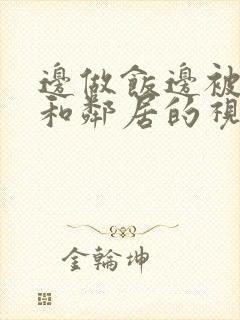 邊做飯邊被
和鄰居的視
金輪坤